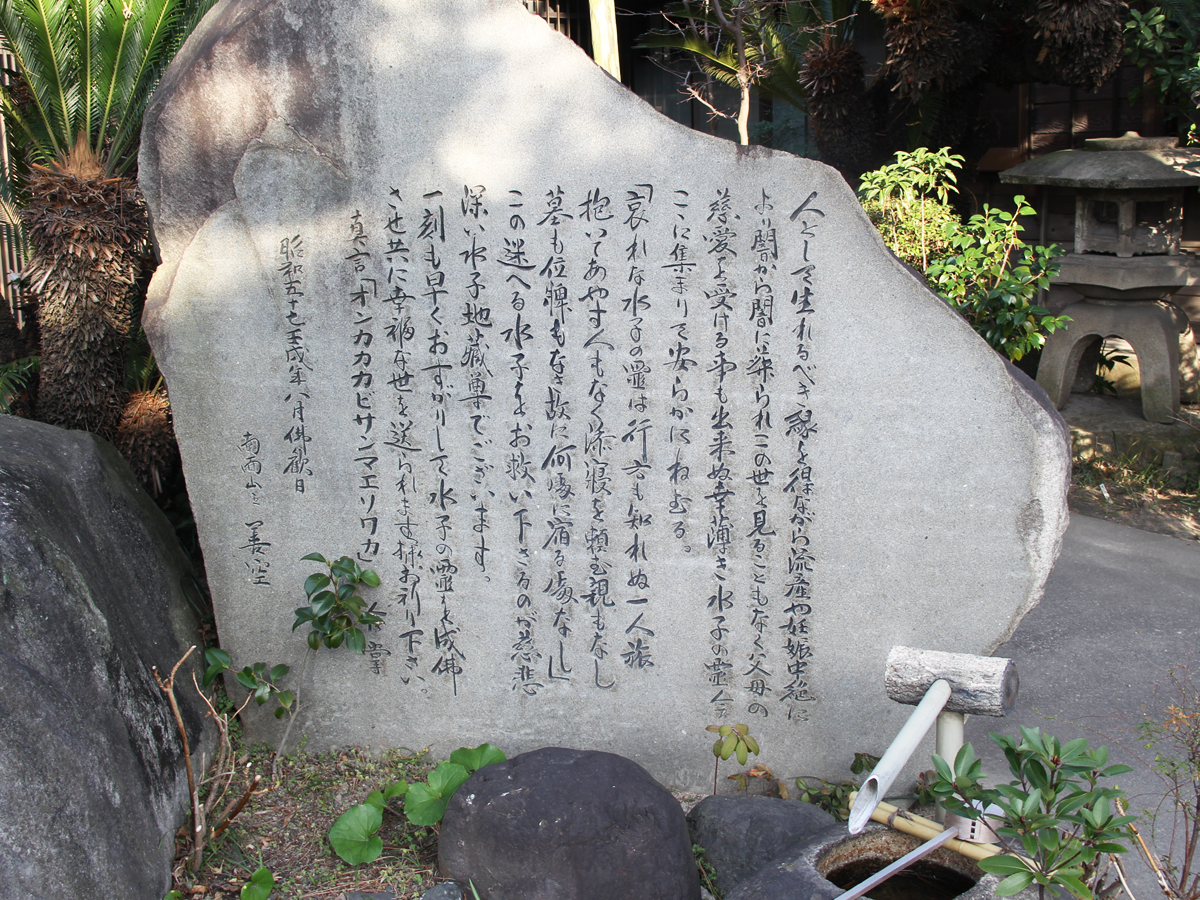 人として生れるべき縁を得ながら流産や妊娠中絶に
より闇から闇に葬られこの世を見ることもなく父母の
慈愛を受ける事も出来ぬ幸薄き水子の霊今
ここに集まりて安らかにねむる。
「哀れな水子の霊は行方も知れぬ一人旅
抱いてあやす人もなく添寝を頼む親もなし
墓も位牌もなき故に何処に宿る処なし」
この迷へる水子をお救い下さるのが慈悲
深い水子地蔵尊でございます。
一刻も早くおすがりして水子の霊を成佛
させ共に幸福な世を送られます様お祈り下さい。
真言「オンカカカビサンマエソワカ」合掌
昭和五十七壬戌年八月佛歓日
南面山主 善空